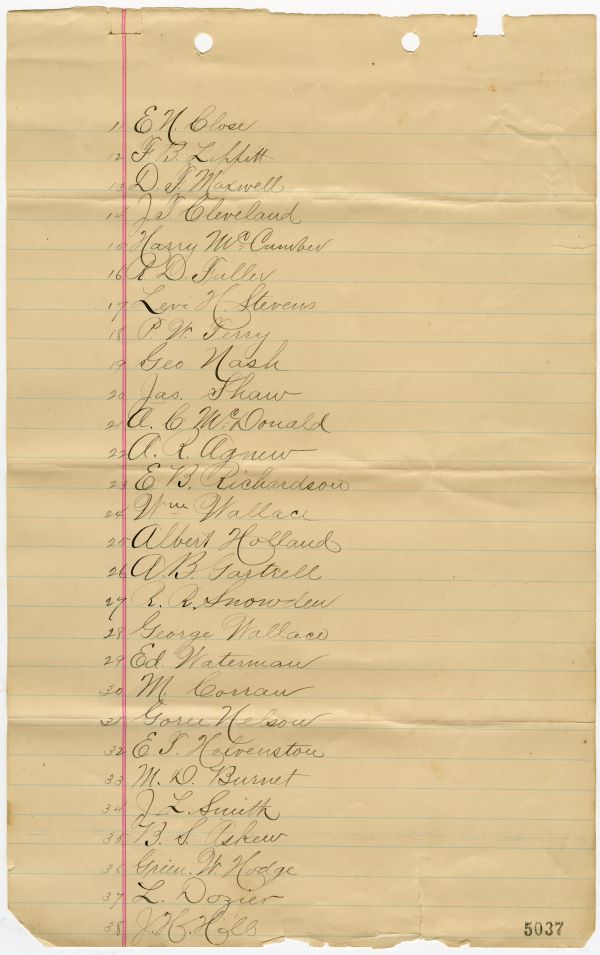 11 E. N. Close
12 F. B. Lippitt
13 D. F. Maxwell
14 J. F. Cleveland
15 Harry McCumber
16 A. D. Fuller
17 Levi H. Stevens
18 P. W. Terry
19 Geo. Nash
20 Jas. Shaw
21 A. C. McDonald
22 A. R. Agnew
23 E. B. Richardson
24 Wm Wallace
25 Albert Holland
26 A. B. Gartrell
27 R. R. Snowden
28 George Wallace
29 Ed. Waterman
30 M. Corran
31 Goree Nelson
32 E. F. Halvenston
33 M. D. Burnet
34 J. L. Smith
35 B. S. Askew
36 Green. W. Hodge
37 L. Dozier
38 J. H. Hall
5037